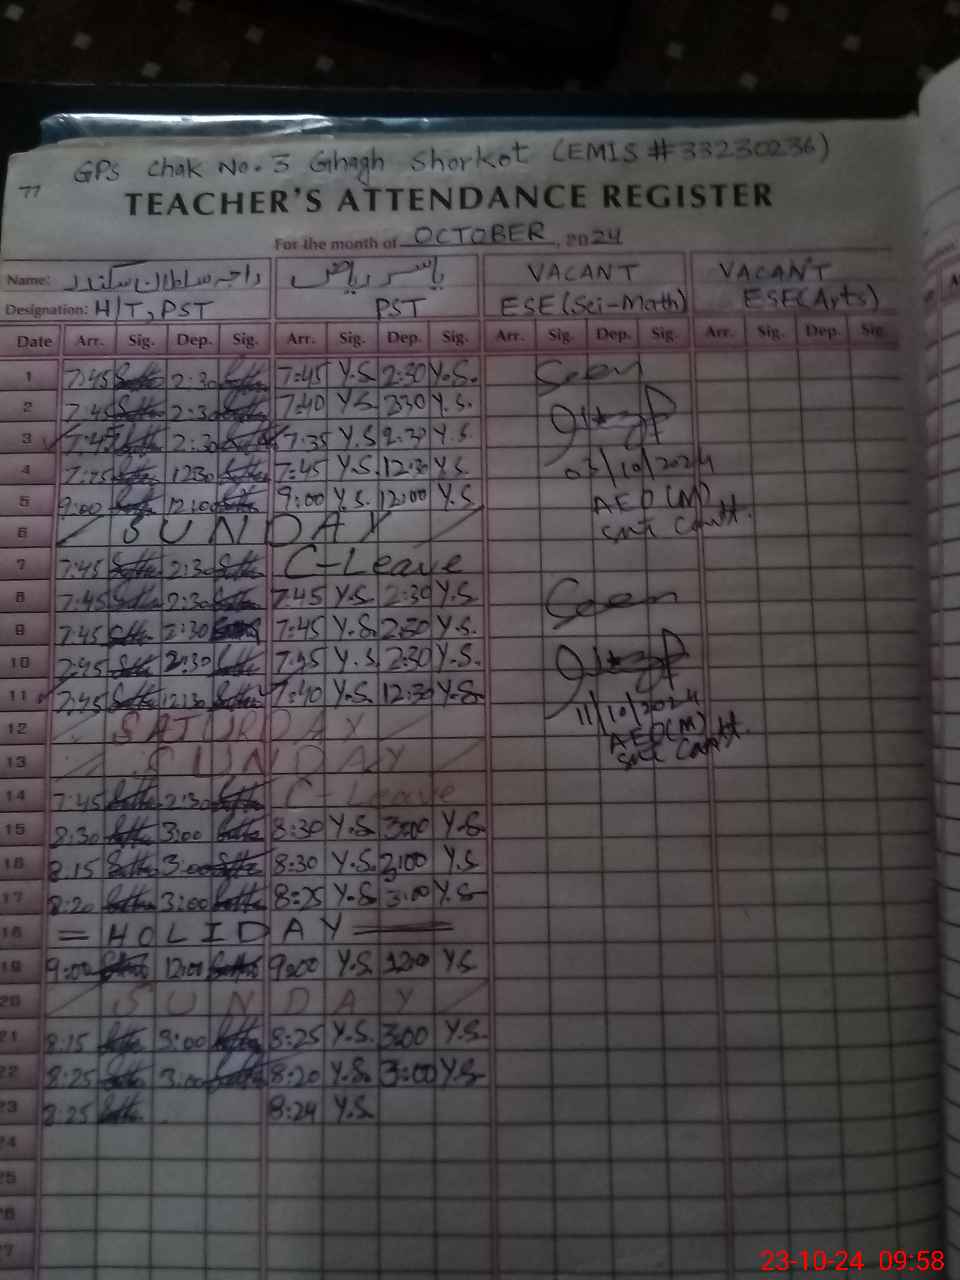 GPS Chak No. 3 Ghagh Shorkot (EMIS #33230236)
77
TEACHER'S ATTENDANCE REGISTER
For the month of OCTOBER, 2024
Name: راجہ سلطان سکندر یاسر ریاض VACANT VACANT
Designation: H/T, PST PST ESE (Sci-Math) ESE (Arts)
Date Arr. Sig. Dep. Sig. Arr. Sig. Dep. Sig. Arr. Sig. Dep. Sig. Arr. Sig. Dep. Sig.
1 7:45 2:30 7:45 Y.S. 2:30 Y.S. Seen
2 7:45 2:30 7:40 Y.S 230 Y.S.
3 7:45 2:30 7:35 Y.S 2:30 Y.S.
4 7:45 1230 7:45 Y.S. 12:30 Y.S. 03/10/2024
5 9:00 12:00 9:00 Y.S. 12:00 Y.S. AEO (M)
6 SUNDAY
7 7:45 2:30 C-Leave
8 7:45 2:30 7:45 Y.S. 2:30 Y.S. Seen
9 7:45 2:30 7:45 Y.S. 2:30 Y.S.
10 7:45 2:30 7:45 Y.S. 2:30 Y.S.
11 7:45 12:30 7:40 Y.S. 12:30 Y.S. 11/10/2024
12 SATURDAY AEO(M)
13 SUNDAY
14 7:45 2:30 C-Leave
15 8:30 3:00 8:30 Y.S. 3:00 Y.S
16 8:15 3:00 8:30 Y.S. 3:00 Y.S
17 8:20 3:00 8:25 Y.S 3:00 Y.S
18 = HOLIDAY =
19 9:00 12:00 9:00 Y.S. 1200 Y.S
20 SUNDAY
21 8:15 3:00 8:25 Y.S. 3:00 Y.S.
22 8:25 3:00 8:20 Y.S. 3:00 Y.S
23 8:25 8:24 Y.S.
24
25
26
27
23-10-24 09:58